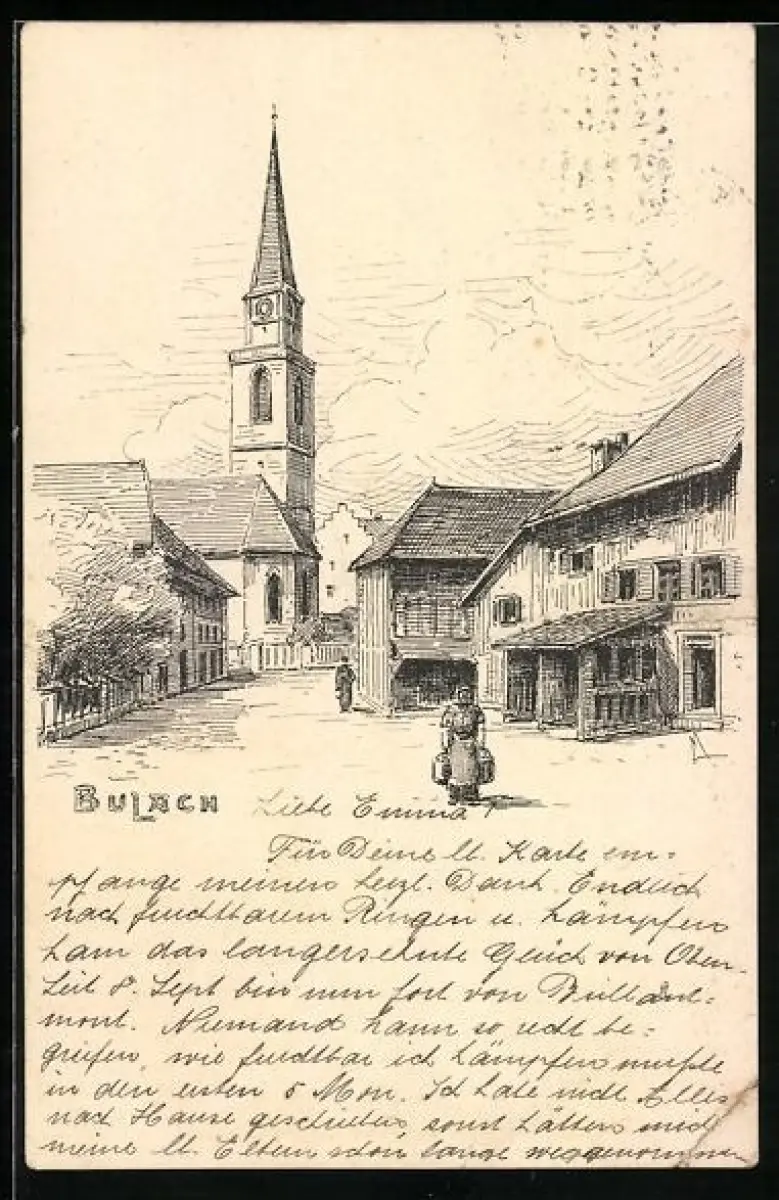 BULACH
Liebe Emma!
Für Deine lb. Karte em=
pfange meinen herzl. Dank. Endlich
nach furchtbarem Ringen u. kämpfen
kam das langersehnte Glück von Oben.
Seit 8. Sept bin nun fort von Brillant=
mont. Niemand kann so recht be=
greifen, wie furchtbar ich kämpfen mußte
in den ersten 5 Mon. Ich habe nicht Alles
nach Hause geschrieben, sonst hätten mich
meine lb. Eltern schon lange weggenommen